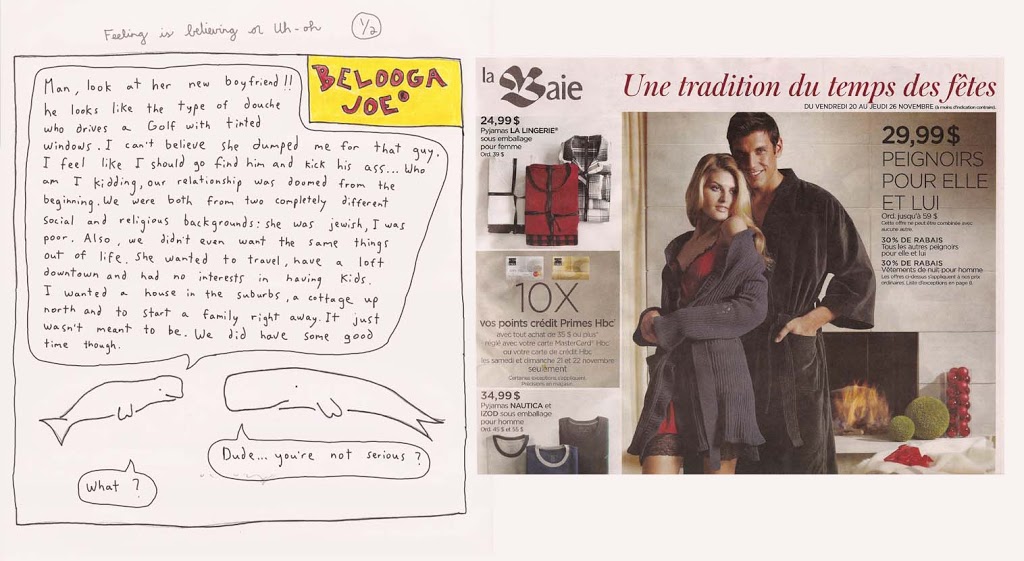 Feeling is believing or Uh-oh
1/2
BELOOGA
JOE®
Man, look at her new boyfriend!!
he looks like the type of douche
who drives a Golf with tinted
windows. I can't believe she dumped me for that guy.
I feel like I should go find him and kick his ass... Who
am I kidding, our relationship was doomed from the
beginning. We were both from two completely different
social and religious backgrounds: she was jewish, I was
poor. Also, we didn't even want the same things
out of life. She wanted to travel, have a loft
downtown and had no interests in having kids.
I wanted a house in the suburbs, a cottage up
north and to start a family right away. It just
wasn't meant to be. We did have some good
time though.
Dude... you're not serious?
What?
la Baie
Une tradition du temps des fêtes
DU VENDREDI 20 AU JEUDI 26 NOVEMBRE (à moins d'indication contraire).
24,99$
Pyjamas LA LINGERIE®
sous emballage
pour femme
Ord. 39 $
10X
vos points crédit Primes Hbc
avec tout achat de 35 $ ou plus
réglé avec votre carte MasterCard Hbc
ou votre carte de crédit Hbc,
les samedi et dimanche 21 et 22 novembre
seulement
Certaines exceptions s'appliquent.
Précisions en magasin.
34,99$
Pyjamas NAUTICA et
IZOD sous emballage
pour homme
Ord. 45 $ et 55 $
29,99$
PEIGNOIRS
POUR ELLE
ET LUI
Ord. jusqu'à 59 $
Cette offre ne peut être combinée avec
aucune autre.
30% DE RABAIS
Tous les autres peignoirs
pour elle et lui
30% DE RABAIS
Vêtements de nuit pour homme
Les offres ci-dessus s'appliquent à nos prix
ordinaires. Liste d'exceptions en page 8.